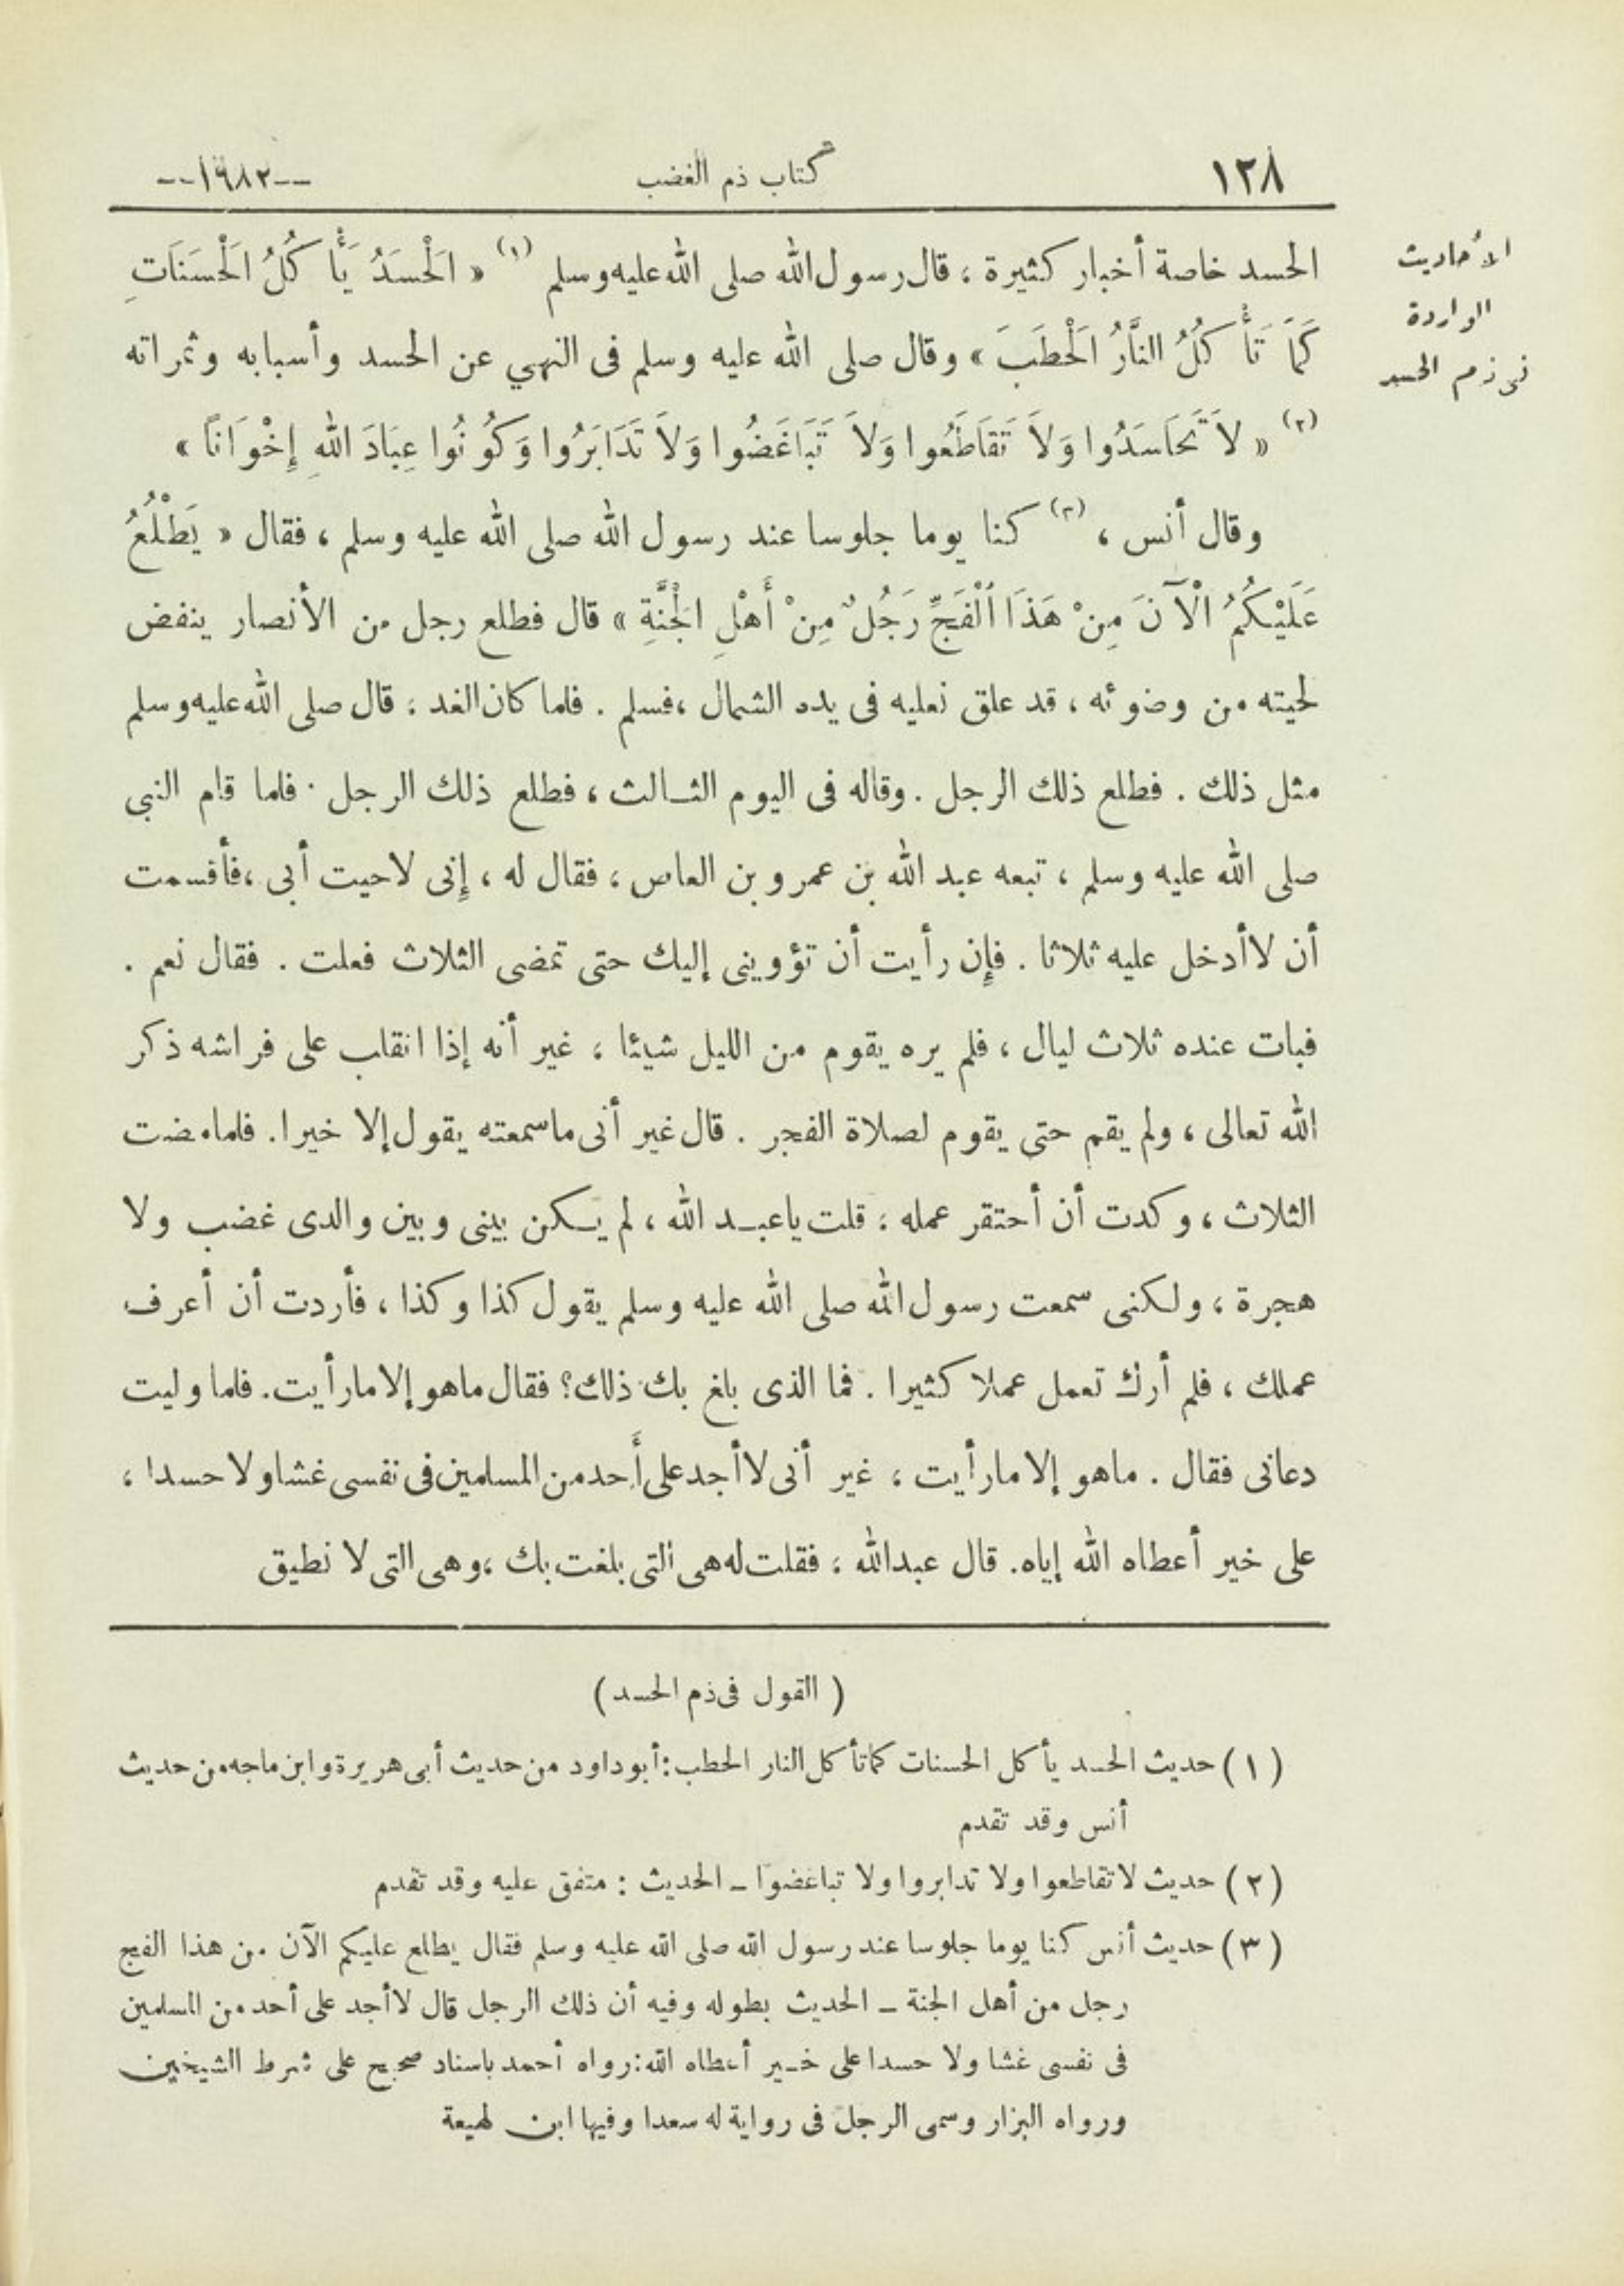 ١٢٨ كتاب ذم الغضب --١٩٨٢--
الأحاديث
الواردة
فى ذم الحسد
الحسد خاصة أخبار كثيرة ، قال رسول الله صلى الله عليه وسلم (١) « اَلْحَسَدُ يَأْكُلُ اَلْحَسَنَاتِ
كَمَا تَأْكُلُ النَّارُ اَلْحَطَبَ » وقال صلى الله عليه وسلم فى النهي عن الحسد وأسبابه وثمراته
(٢) « لاَ تَحَاسَدُوا وَلاَ تَقَاطَعُوا وَلاَ تَبَاغَضُوا وَلاَ تَدَابَرُوا وَكُونُوا عِبَادَ اللهِ إِخْوَانَاً »
وقال أنس ، (٣) كنا يوما جلوسا عند رسول الله صلى الله عليه وسلم ، فقال « يَطْلُعُ
عَلَيْكُمُ الْآنَ مِنْ هَذَا اَلْفَجِّ رَجُلٌ مِنْ أَهْلِ الْجَنَّةِ » قال فطلع رجل من الأنصار ينفض
لحيته من وضوئه ، قد علق نعليه فى يده الشمال ، فسلم . فلما كان الغد ، قال صلى الله عليه وسلم
مثل ذلك . فطلع ذلك الرجل . وقاله فى اليوم الثالث ، فطلع ذلك الرجل . فلما قام النبى
صلى الله عليه وسلم ، تبعه عبد الله بن عمرو بن العاص ، فقال له ، إنى لاحيت أبى ، فأقسمت
أن لا أدخل عليه ثلاثا . فإن رأيت أن تؤوينى إليك حتى تمضى الثلاث فعلت . فقال نعم .
فبات عنده ثلاث ليال ، فلم يره يقوم من الليل شيئا ، غير أنه إذا انقلب على فراشه ذكر
الله تعالى ، ولم يقم حتى يقوم لصلاة الفجر . قال غير أنى ما سمعته يقول إلا خيرا . فلما مضت
الثلاث ، وكدت أن أحتقر عمله ؛ قلت يا عبد الله ، لم يكن بينى وبين والدى غضب ولا
هجرة ، ولكنى سمعت رسول الله صلى الله عليه وسلم يقول كذا وكذا ، فأردت أن أعرف
عملك ، فلم أرك تعمل عملا كثيرا . فما الذى بلغ بك ذلك؟ فقال ما هو إلا ما رأيت . فلما وليت
دعانى فقال . ما هو إلا ما رأيت ، غير أنى لا أجد على أحد من المسلمين فى نفسى غشا ولا حسدا ،
على خير أعطاه الله إياه . قال عبد الله ؛ فقلت له هى التى بلغت بك ، وهى التى لا نطيق
( القول فى ذم الحسد )
(١) حديث الحسد يأكل الحسنات كما تأكل النار الحطب : أبو داود من حديث أبى هريرة وابن ماجه من حديث
أنس وقد تقدم
(٢) حديث لا تقاطعوا ولا تدابروا ولا تباغضوا ـ الحديث : متفق عليه وقد تقدم
(٣) حديث أنس كنا يوما جلوسا عند رسول الله صلى الله عليه وسلم فقال يطلع عليكم الآن من هذا الفج
رجل من أهل الجنة ـ الحديث بطوله وفيه أن ذلك الرجل قال لا أجد على أحد من المسلمين
فى نفسى غشا ولا حسدا على خير أعطاه الله : رواه أحمد باسناد صحيح على شرط الشيخين
ورواه البزار وسمى الرجل فى رواية له سعدا وفيها ابن لهيعة